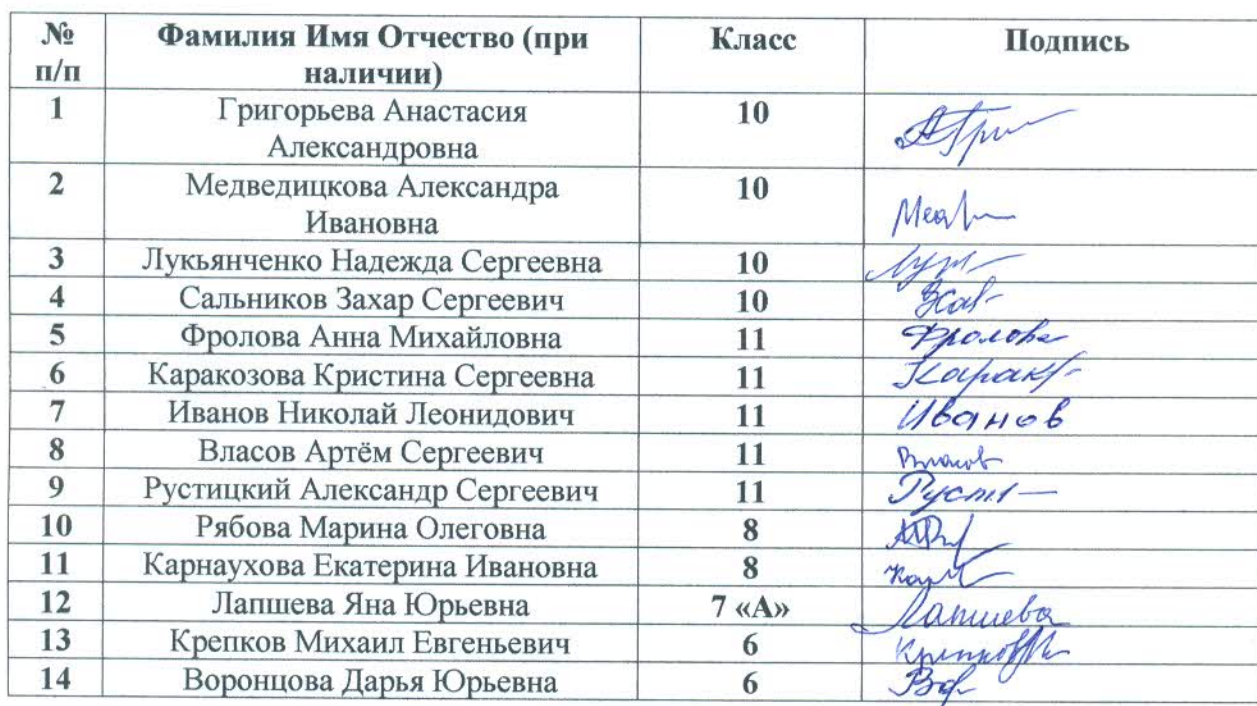 № п/п Фамилия Имя Отчество (при наличии) Класс Подпись
1 Григорьева Анастасия Александровна 10
2 Медведицкова Александра Ивановна 10
3 Лукьянченко Надежда Сергеевна 10
4 Сальников Захар Сергеевич 10
5 Фролова Анна Михайловна 11 Фролова
6 Каракозова Кристина Сергеевна 11
7 Иванов Николай Леонидович 11 Иванов
8 Власов Артём Сергеевич 11 Власов
9 Рустицкий Александр Сергеевич 11
10 Рябова Марина Олеговна 8
11 Карнаухова Екатерина Ивановна 8
12 Лапшева Яна Юрьевна 7 «А» Лапшева
13 Крепков Михаил Евгеньевич 6
14 Воронцова Дарья Юрьевна 6